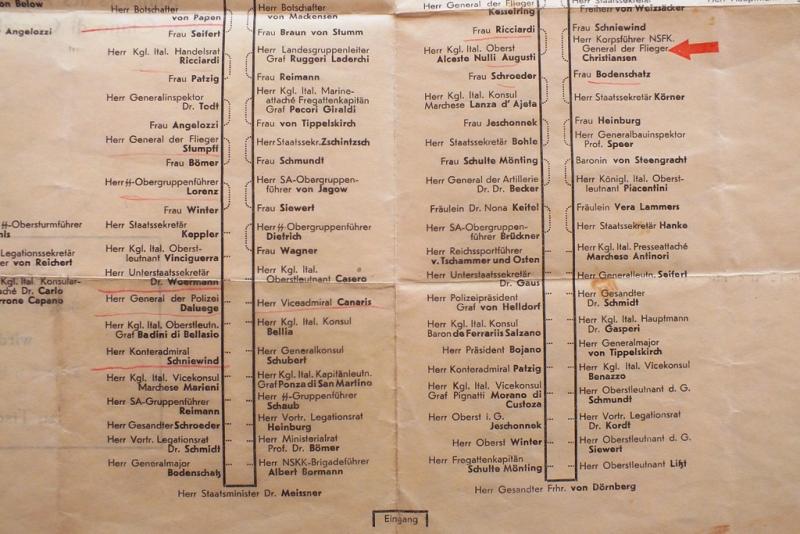 on Below
Angelozzi
ᛋᛋ-Obersturmführer
Legationssekretär
er von Reichert
Kgl. Ital. Konsular-
aché Dr. Carlo
rrone Capano
Herr Botschafter
von Papen
Frau Seifert
Herr Kgl. Ital. Handelsrat
Ricciardi
Frau Patzig
Herr Generalinspektor
Dr. Todt
Frau Angelozzi
Herr General der Flieger
Stumpff
Frau Bömer
Herr ᛋᛋ-Obergruppenführer
Lorenz
Frau Winter
Herr Staatssekretär
Keppler
Herr Kgl. Ital. Oberst-
leutnant Vinciguerra
Herr Unterstaatssekretär
Dr. Woermann
Herr General der Polizei
Daluege
Herr Kgl. Ital. Oberstleutn.
Graf Badini di Bellasio
Herr Konteradmiral
Schniewind
Herr Kgl. Ital. Vicekonsul
Marchese Marieni
Herr SA-Gruppenführer
Reimann
Herr Gesandter Schroeder
Herr Vortr. Legationsrat
Dr. Schmidt
Herr Generalmajor
Bodenschatz
Herr Botschafter
von Mackensen
Frau Braun von Stumm
Herr Landesgruppenleiter
Graf Ruggeri Laderchi
Frau Reimann
Herr Kgl. Ital. Marine-
attaché Fregattenkapitän
Graf Pecori Giraldi
Frau von Tippelskirch
Herr Staatssekr. Zschintzsch
Frau Schmundt
Herr SA-Obergruppen-
führer von Jagow
Frau Siewert
Herr ᛋᛋ Obergruppenführer
Dietrich
Frau Wagner
Herr Kgl. Ital.
Oberstleutnant Casero
Herr Viceadmiral Canaris
Herr Kgl. Ital. Konsul
Bellia
Herr Generalkonsul
Schubert
Herr Kgl. Ital. Kapitänleutn.
Graf Ponza di San Martino
Herr ᛋᛋ-Gruppenführer
Schaub
Herr Vortr. Legationsrat
Heinburg
Herr Ministerialrat
Prof. Dr. Bömer
Herr NSKK-Brigadeführer
Albert Bormann
Herr Staatsminister Dr. Meissner
Herr General der Flieger
Kesselring
Frau Ricciardi
Herr Kgl. Ital. Oberst
Alceste Nulli Augusti
Frau Schroeder
Herr Kgl. Ital. Konsul
Marchese Lanza d'Ajeta
Frau Jeschonnek
Herr Staatssekretär Bohle
Frau Schulte Mönting
Herr General der Artillerie
Dr. Dr. Becker
Fräulein Dr. Nona Keitel
Herr SA-Obergruppen-
führer Brückner
Herr Reichssportführer
v. Tschammer und Osten
Herr Unterstaatssekretär
Dr. Gaus
Herr Polizeipräsident
Graf von Helldorf
Herr Kgl. Ital. Konsul
Baron de Ferrariis Salzano
Herr Präsident Bojano
Herr Konteradmiral Patzig
Herr Kgl. Ital. Vicekonsul
Graf Pignatti Morano di
Custoza
Herr Oberst i. G.
Jeschonnek
Herr Oberst Winter
Herr Fregattenkapitän
Schulte Mönting
Herr Staatssekretär
Freiherr von Weizsäcker
Frau Schniewind
Herr Korpsführer NSFK.
General der Flieger
Christiansen
Frau Bodenschatz
Herr Staatssekretär Körner
Frau Heinburg
Herr Generalbauinspektor
Prof. Speer
Baronin von Steengracht
Herr Königl. Ital. Oberst-
leutnant Piacentini
Fräulein Vera Lammers
Herr Staatssekretär Hanke
Herr Kgl. Ital. Presseattaché
Marchese Antinori
Herr Generalleutn. Seifert
Herr Gesandter
Dr. Schmidt
Herr Kgl. Ital. Hauptmann
Dr. Gasperi
Herr Generalmajor
von Tippelskirch
Herr Kgl. Ital. Vicekonsul
Benazzo
Herr Oberstleutnant d. G.
Schmundt
Herr Vortr. Legationsrat
Dr. Kordt
Herr Oberstleutnant d. G.
Siewert
Herr Oberstleutnant Litzt
Herr Gesandter Frhr. von Dörnberg
Eingang